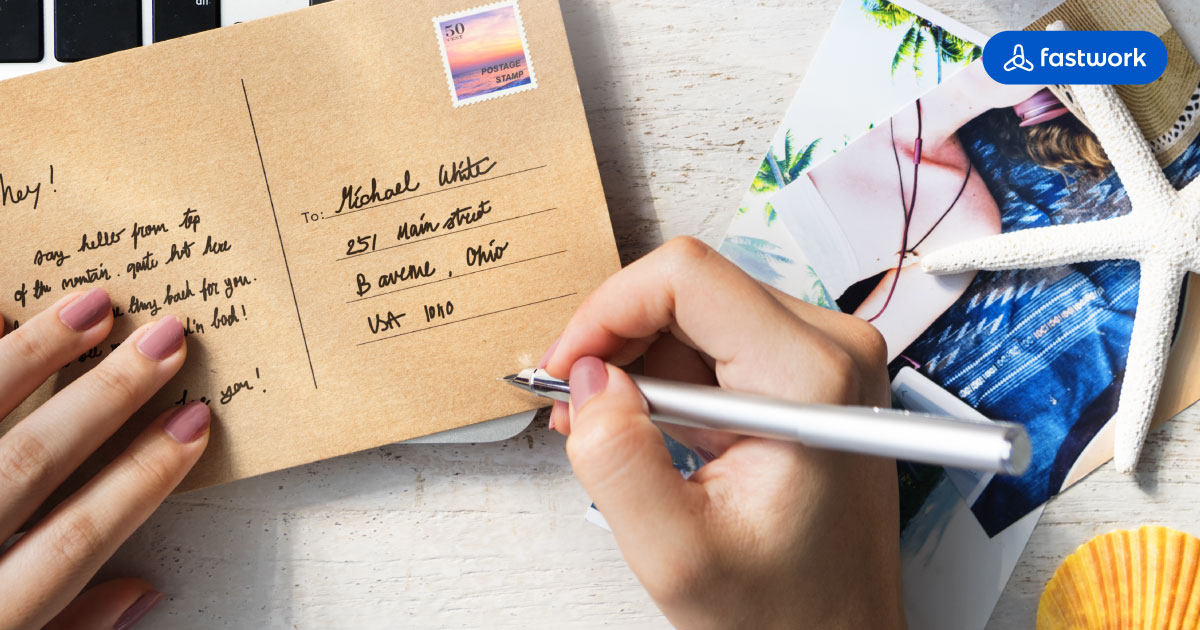 50
CENT
POSTAGE
STAMP
fastwork
Hey!
say hello from top
of the mountain. quite hot here
thing back for you.
you!
To: Michael White
251 Main street
B avenue, Ohio
USA 1010